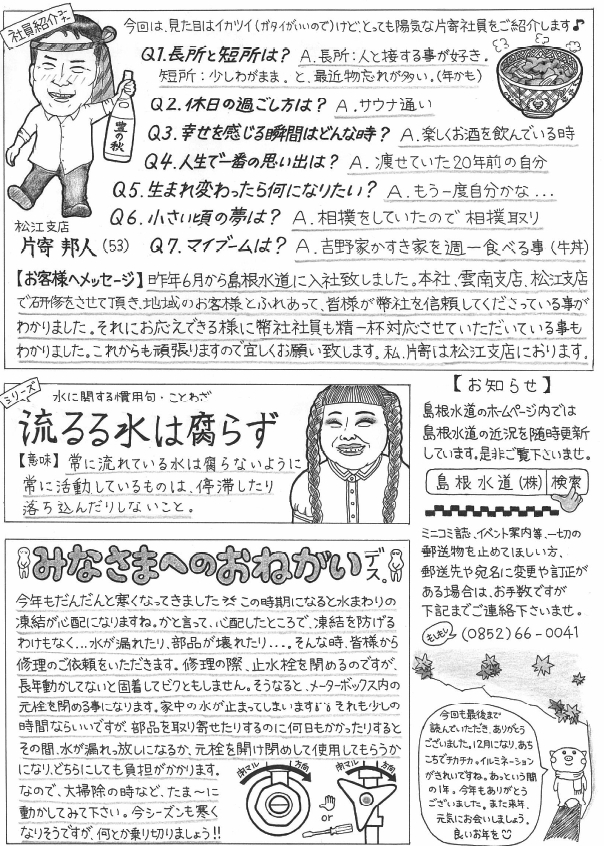 社員紹介㉘
今回は、見た目はイカツイ(ガタイがいいので)けど、とっても陽気な片寄社員をご紹介します♪
Q1.長所と短所は? A.長所:人と接する事が好き。
短所:少しわがまま。と、最近物忘れが多い。(年かも)
Q2.休日の過ごし方は? A.サウナ通い
Q3.幸せを感じる瞬間はどんな時? A.楽しくお酒を飲んでいる時
Q4.人生で一番の思い出は? A.痩せていた20年前の自分
Q5.生まれ変わったら何になりたい? A.もう一度自分かな...
Q6.小さい頃の夢は? A.相撲をしていたので相撲取り
Q7.マイブームは? A.吉野家かすき家を週一食べる事(牛丼)
豊の秋
松江支店
片寄 邦人(53)
【お客様へメッセージ】昨年6月から島根水道に入社致しました。本社、雲南支店、松江支店
で研修をさせて頂き、地域のお客様とふれあって、皆様が弊社を信頼してくださっている事が
わかりました。それにお応えできる様に弊社社員も精一杯対応させていただいている事も
わかりました。これからも頑張りますので宜しくお願い致します。私、片寄は松江支店におります。
シリーズ
水に関する慣用句・ことわざ
流るる水は腐らず
【意味】常に流れている水は腐らないように
常に活動しているものは、停滞したり
落ち込んだりしないこと。
【お知らせ】
島根水道のホームページ内では
島根水道の近況を随時更新
しています。是非ご覧下さいませ。
島根水道(株) 検索
ミニコミ誌、イベント案内等、一切の
郵送物を止めてほしい方、
郵送先や宛名に変更や訂正が
ある場合は、お手数ですが
下記までご連絡下さいませ。
もしもし (0852)66-0041
みなさまへのおねがいデス。
今年もだんだんと寒くなってきました この時期になると水まわりの
凍結が心配になりますね。かと言って、心配したところで、凍結を防げる
わけもなく...水が漏れたり、部品が壊れたり...。そんな時、皆様から
修理のご依頼をいただきます。修理の際、止水栓を閉めるのですが、
長年動かしてないと固着してビクともしません。そうなると、メーターボックス内の
元栓を閉める事になります。家中の水が止まってしまいます それも少しの
時間ならいいですが、部品を取り寄せたりするのに何日もかかったりすると
その間、水が漏れっ放しになるか、元栓を開け閉めして使用してもらうか
になり、どちらにしても負担がかかります。
なので、大掃除の時など、たま〜に
動かしてみて下さい。今シーズンも寒く
なりそうですが、何とか乗り切りましょう!!
閉マル方向
or
閉マル方向
今回も最後まで
読んでいただき、ありがとう
ございました。12月になり、あち
こちでチカチカ。イルミネーション
がきれいですね。あっという間
の1年。今年もありがとう
ございました。また来年、
元気にお会いしましょう。
良いお年を